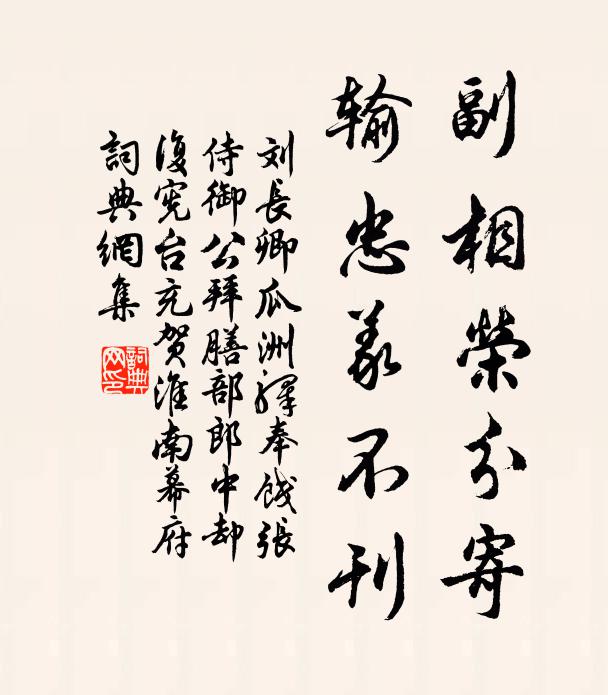 副相榮分寄
輸忠義不刊
刘長卿瓜洲驛奉餞張
侍御公拜膳部郎中却
復宪台充贺淮南幕府
詞典網集
詞典网印